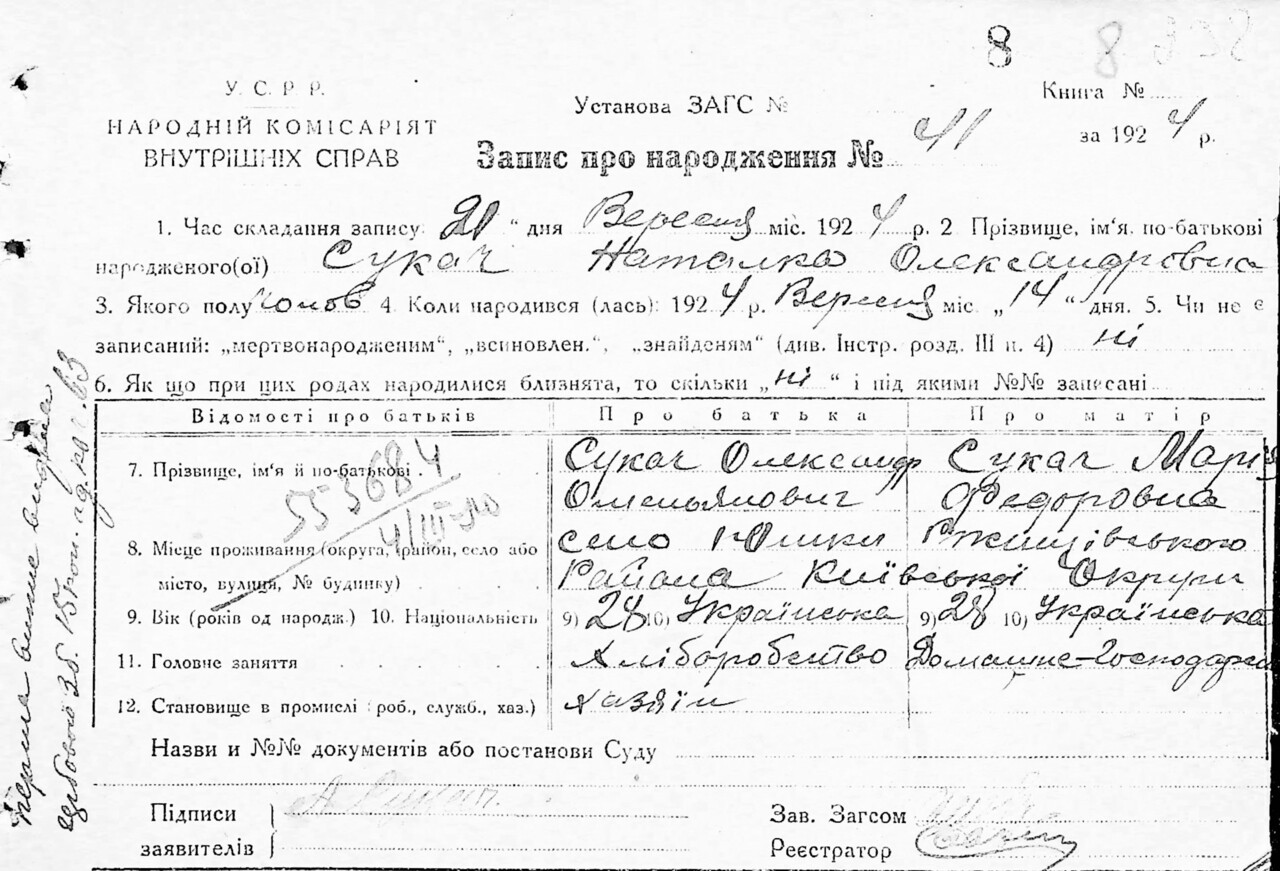 8 8 238
У. С. Р. Р.
НАРОДНІЙ КОМІСАРІЯТ
ВНУТРІШНІХ СПРАВ
Установа ЗАГС №
Книга №
за 1924 р.
Запис про народження № 41
1. Час складання запису 21 " дня Вересня міс. 1924 р. 2 Прізвище, ім'я по-батькові
народженого(ої) Сукач Наталка Олександровна
3. Якого полу жонов 4. Коли народився (лась): 1924 р. Вересня міс. „14" дня. 5. Чи не є
записаний: „мертвонародженим", „всиновлен.", „знайденям" (див. Інстр. розд. III п. 4) ні
6. Як що при цих родах народилися близнята, то скільки „ні" і під якими №№ записані
Відомості про батьків Про батька Про матір
7. Прізвище, ім'я й по-батькові Сукач Олександр Сукач Марія
Омельянович Федоровна
553684
4/III-
8. Місце проживання (округа, район, село або село Юшки Ржищівського
місто, вулиця, № будинку) Района Київської Округи
9. Вік (років од народж.) 10. Національність 9) 28 10) Українська 9) 28 10) Українська
11. Головне заняття Хліборобство Домашнє-Господарка
12. Становище в промислі (роб., служб., хаз.) хазяїн
Назви и №№ документів або постанови Суду
Підписи А Сукач
заявителів
Зав. Загсом
Реєстратор